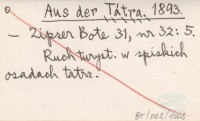 Aus der Tatra. 1893.
— Zipser Bote 31, nr 32: 5.
Ruch turyst. w spiskich
osadach tatrz.
BT/002/1005